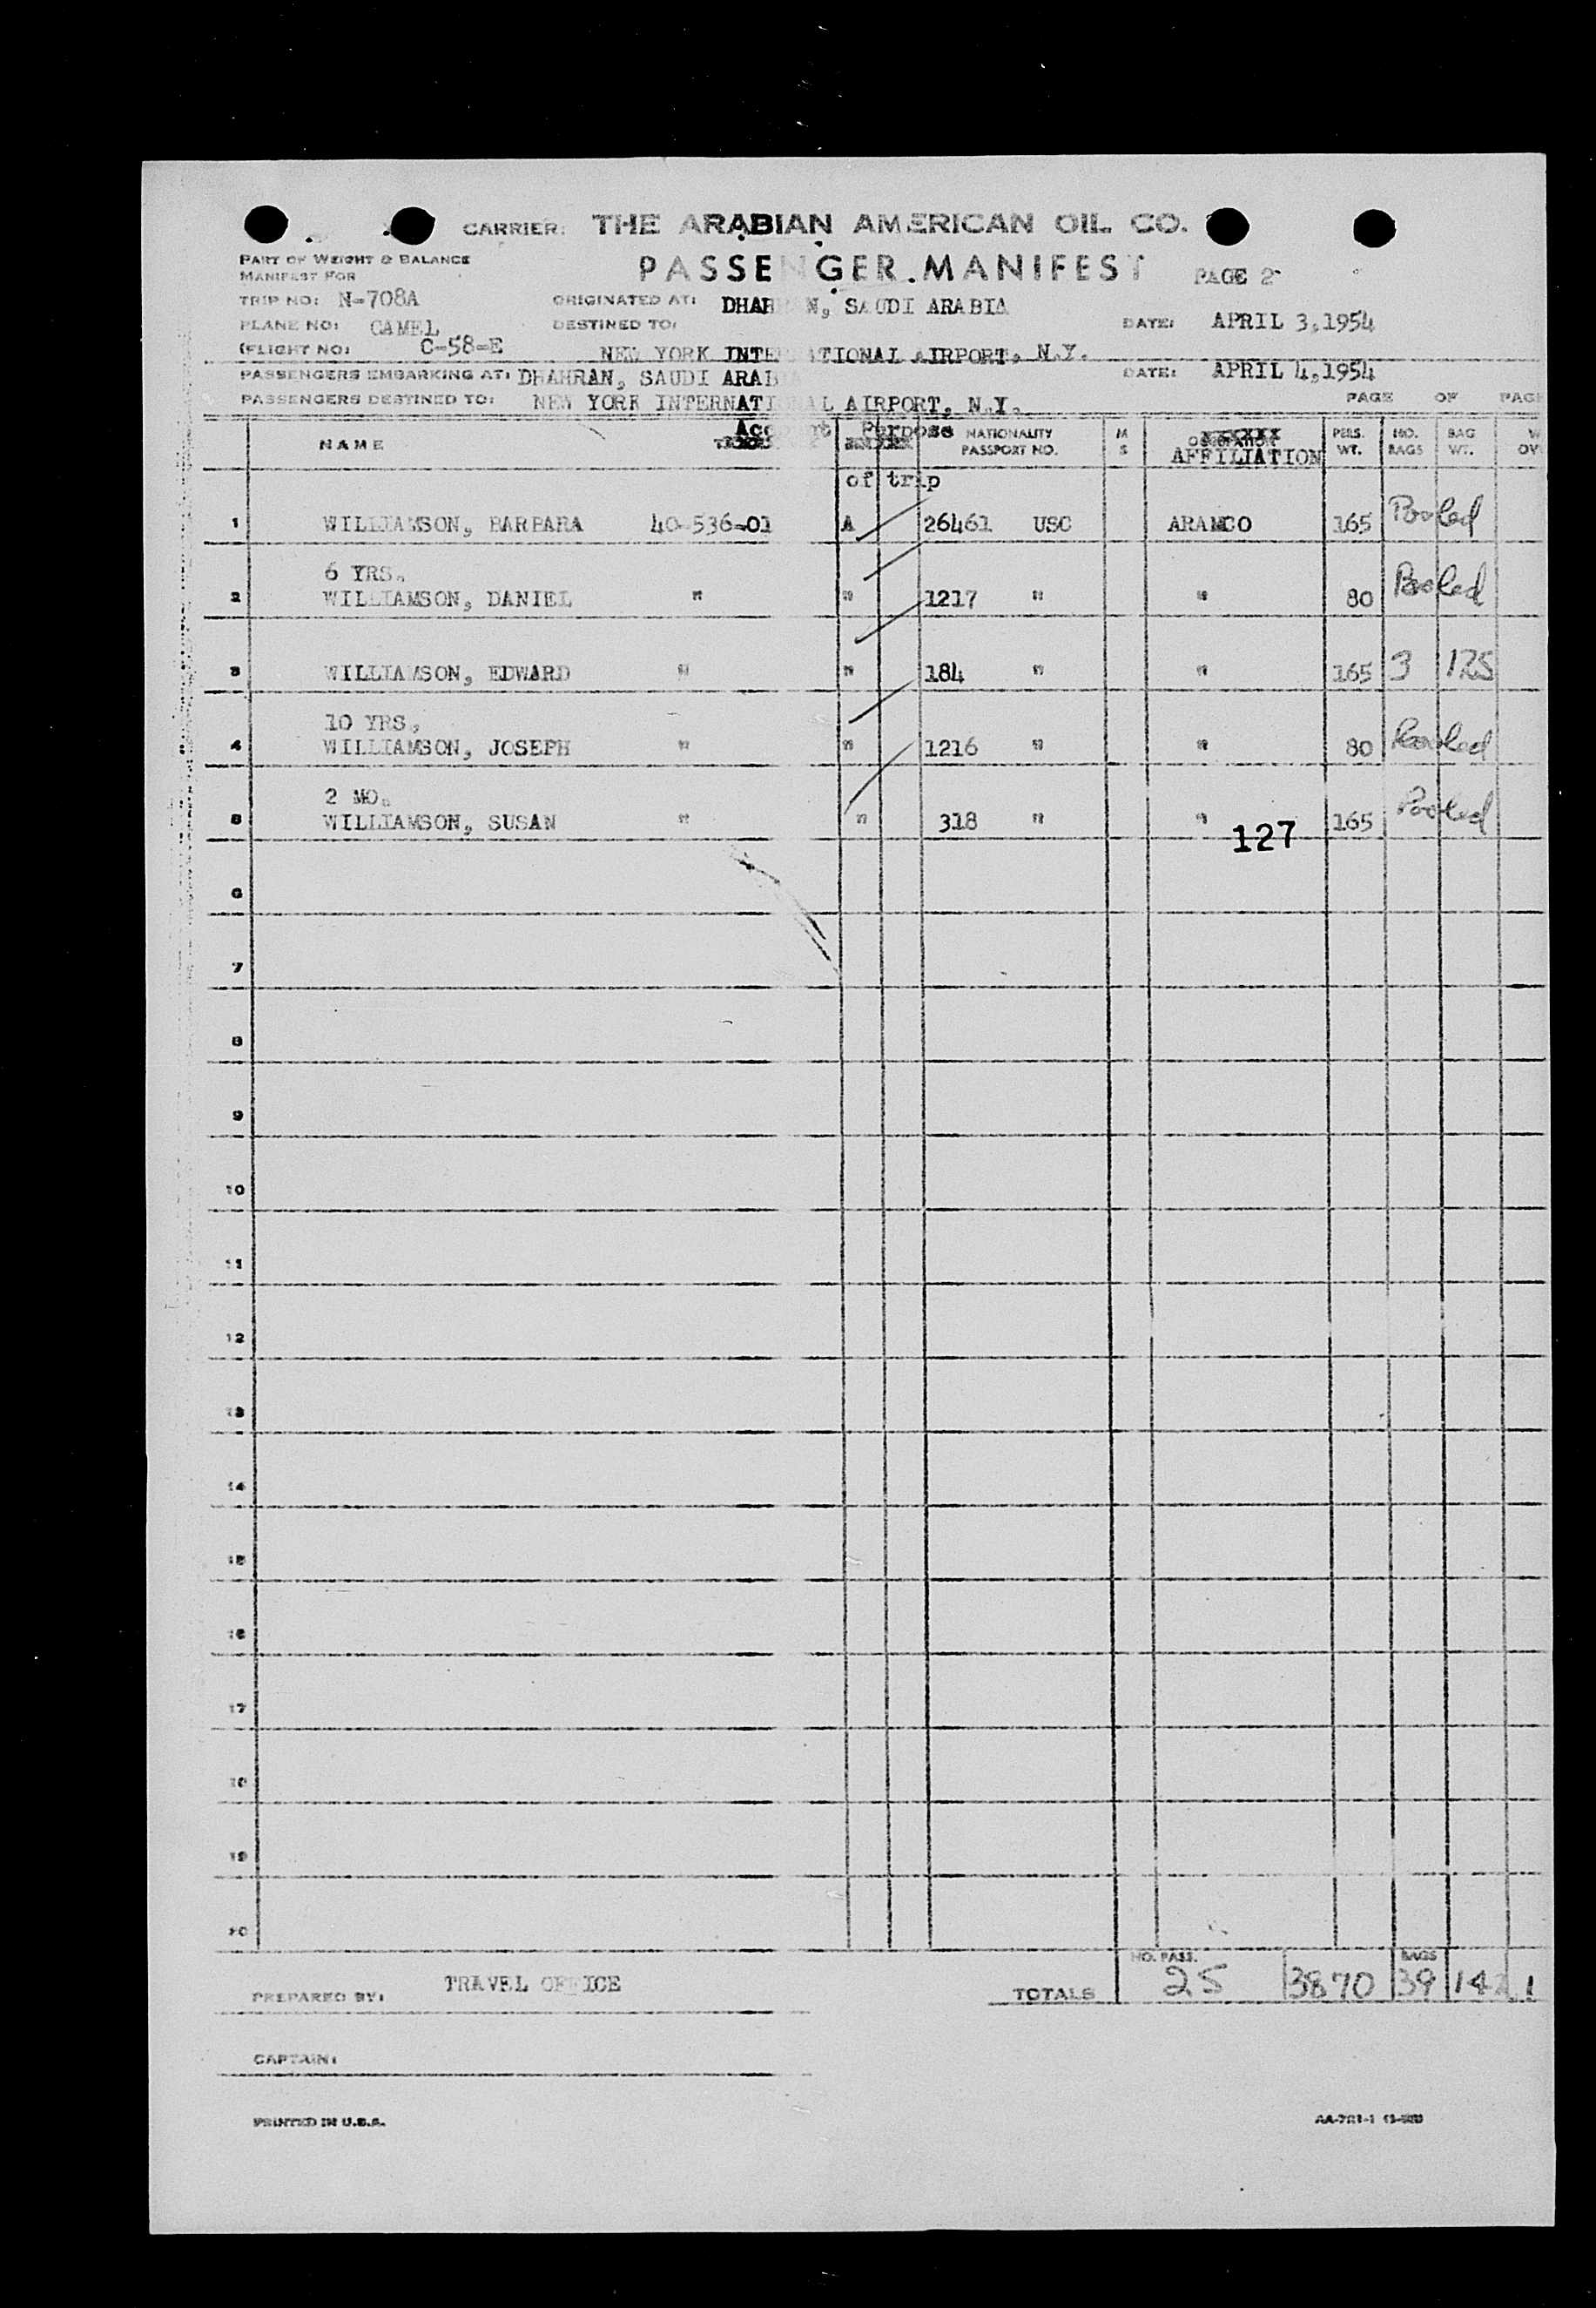 CARRIER: THE ARABIAN AMERICAN OIL CO.
PART OF WEIGHT & BALANCE
MANIFEST FOR
PASSENGER MANIFEST PAGE 2
TRIP NO: N-708A ORIGINATED AT: DHAHRAN, SAUDI ARABIA
PLANE NO: CAMEL DESTINED TO: DATE: APRIL 3,1954
(FLIGHT NO: C-58-E NEW YORK INTERNATIONAL AIRPORT, N.Y.
PASSENGERS EMBARKING AT: DHAHRAN, SAUDI ARABIA DATE: APRIL 4,1954
PASSENGERS DESTINED TO: NEW YORK INTERNATIONAL AIRPORT, N.Y. PAGE OF PAGE
NAME Account Purpose of trip NATIONALITY PASSPORT NO. M S OCCUPATION AFFILIATION PERS. WT. NO. BAGS BAG WT. W OV
1 WILLIAMSON, BARBARA 40-536-01 A 26461 USC ARAMCO 165 Pooled
6 YRS.
2 WILLIAMSON, DANIEL " " 1217 " " 80 Pooled
3 WILLIAMSON, EDWARD " " 184 " " 165 3 125
10 YRS,
4 WILLIAMSON, JOSEPH " " 1216 " " 80 Pooled
2 MO.
5 WILLIAMSON, SUSAN " " 318 " " 165 Pooled
127
6
7
8
9
10
11
12
13
14
15
16
17
18
19
20
PREPARED BY: TRAVEL OFFICE TOTALS NO. PASS. 25 3870 BAGS 39
CAPTAIN:
PRINTED IN U.S.A.